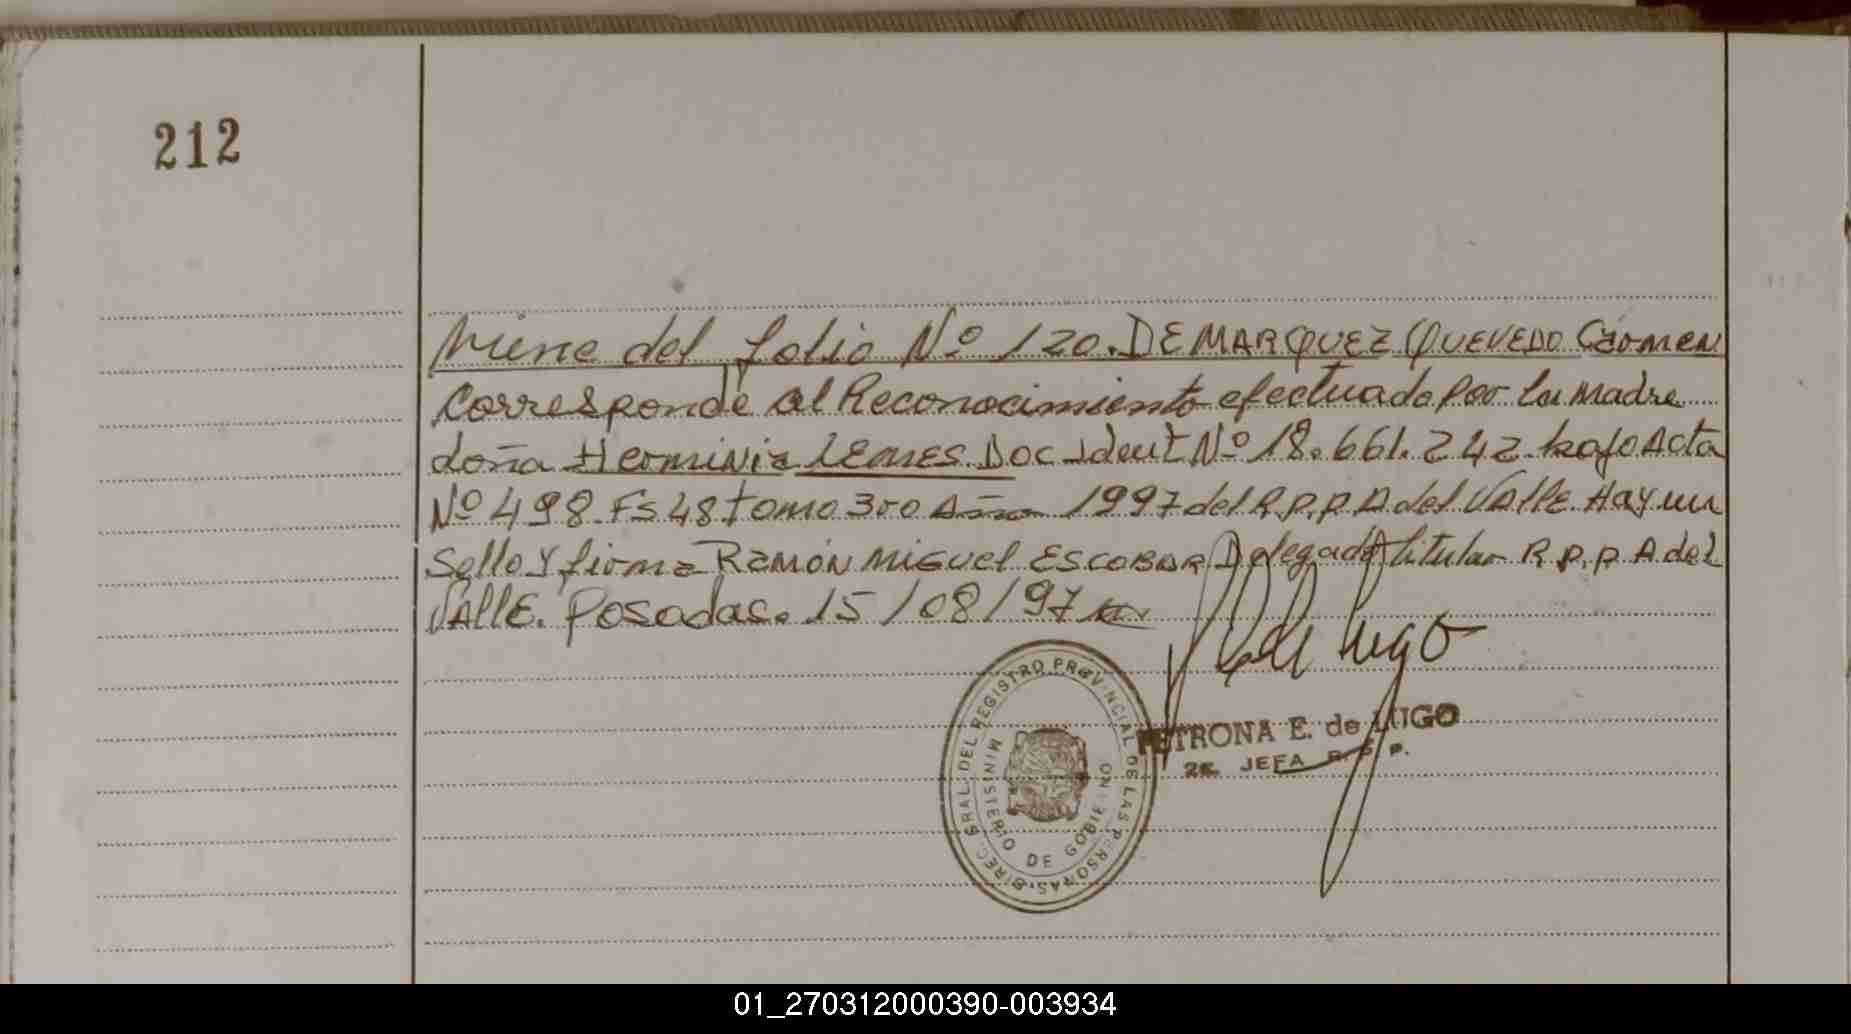 212
Viene del folio Nº 120. DE MARQUEZ QUEVEDO Carmen
Corresponde al Reconocimiento efectuado por la Madre
doña Herminia LEMES Doc Ident Nº 18.661.242 bajo Acta
Nº 498 FS 48 tomo 3ro Año 1997 del R.P.P A del VAllE. Hay un
Sello y firma RAMÓN MIGUEL ESCOBAR Delegado titular R P.P A del
VAllE. Posadas. 15/08/97
Lugo
DIREC. GRAL. DEL REGISTRO PROVINCIAL DE LAS PERSONAS
MINISTERIO DE GOBIERNO
PETRONA E. de LUGO
2a. JEFA R. P. P.
01_270312000390-003934